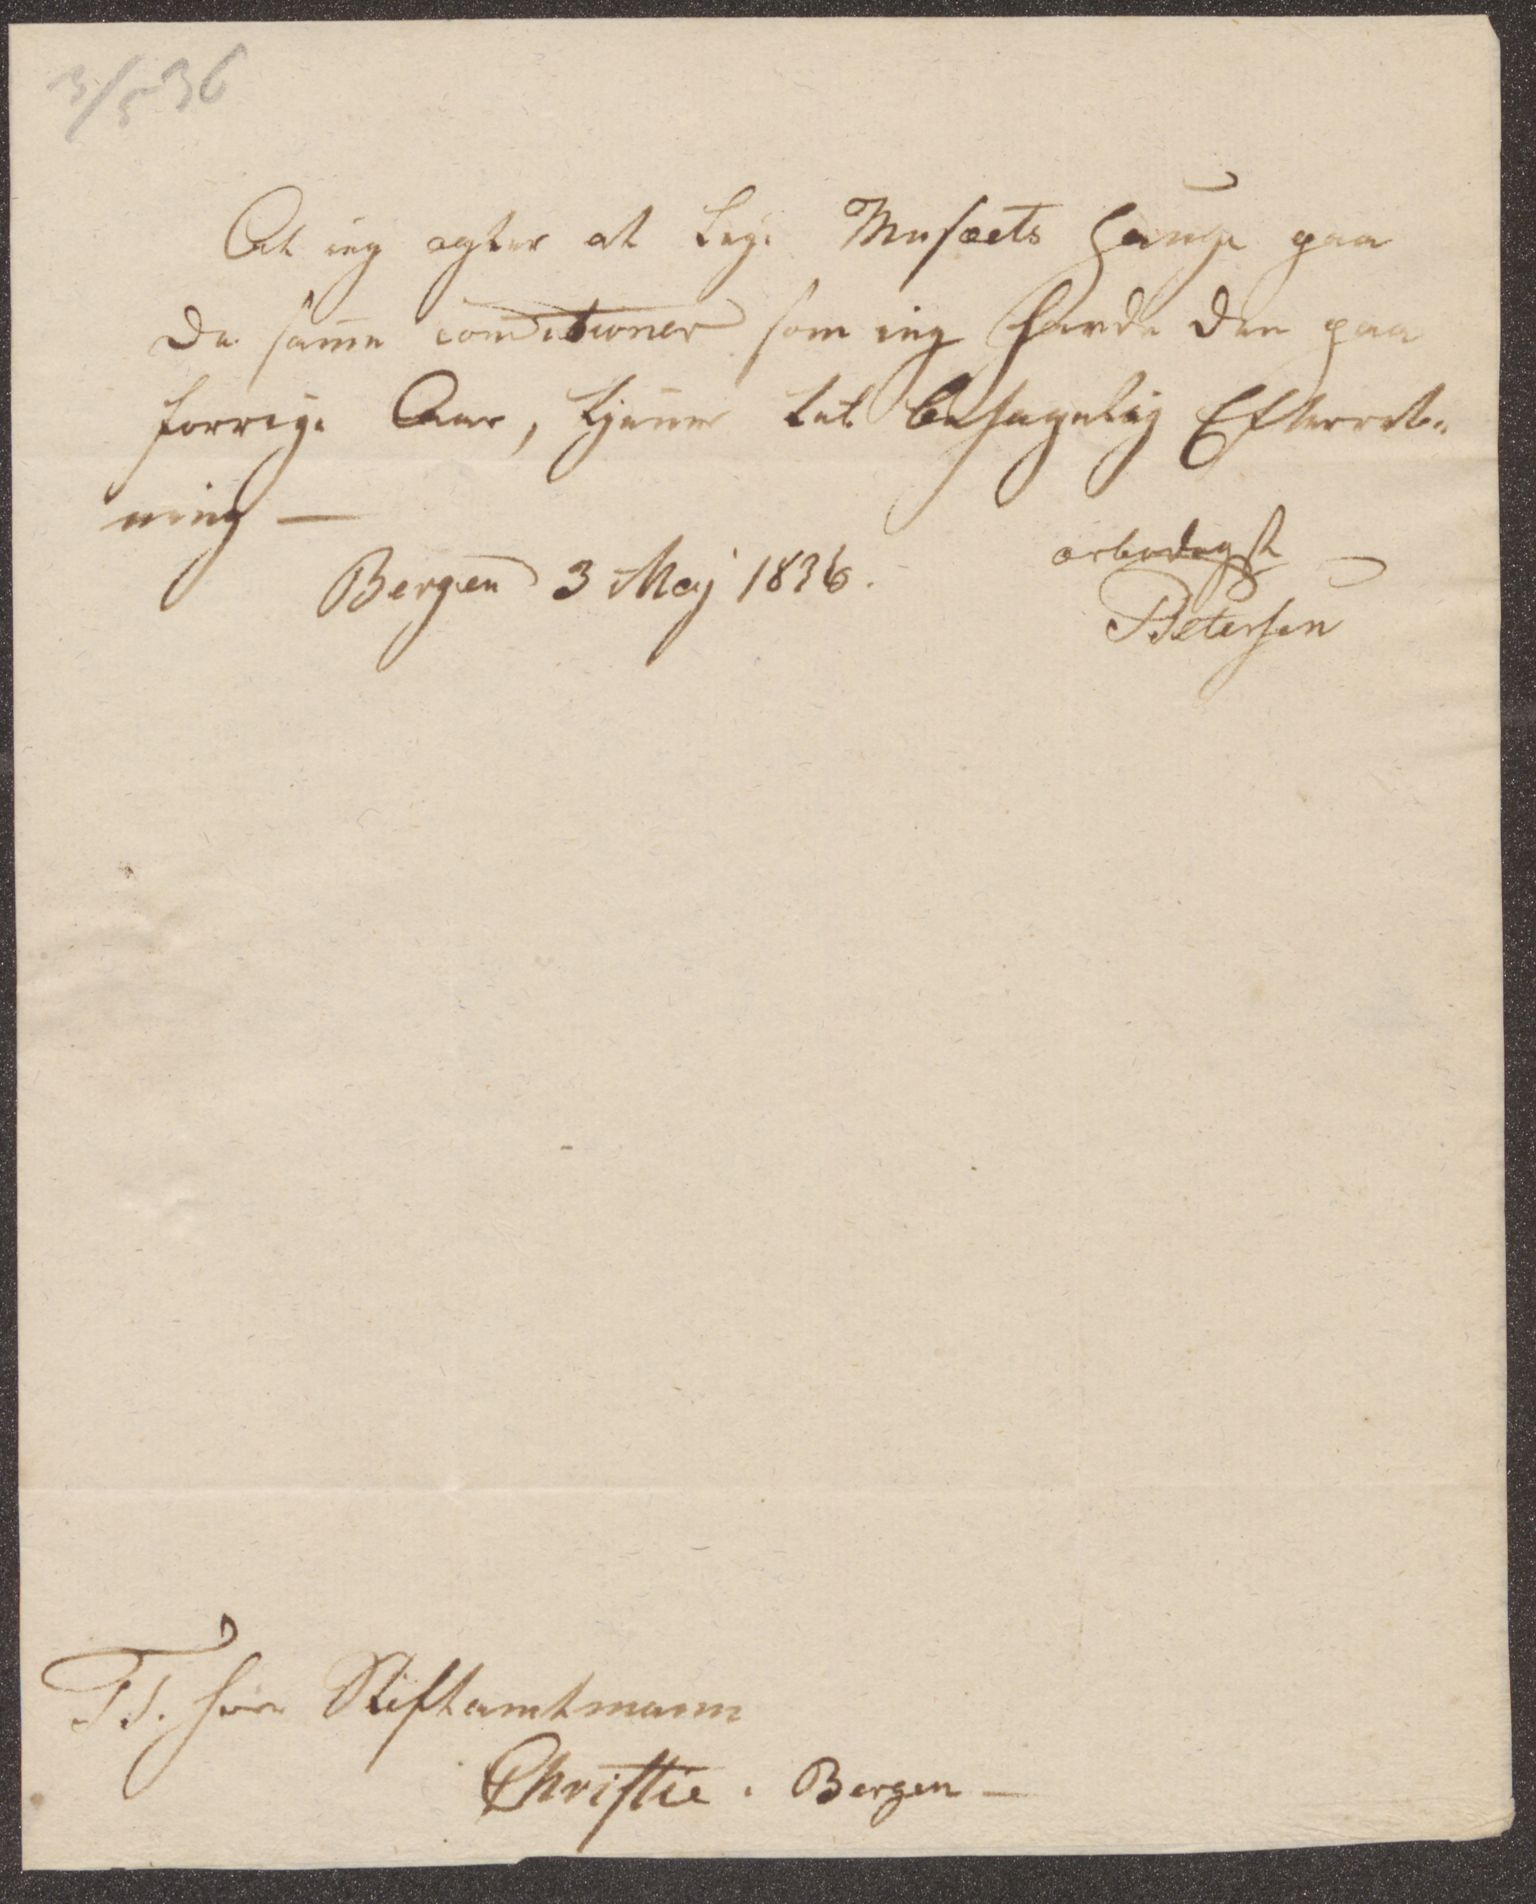 3/5 36
At ieg agter at leye Musæets Hauge paa
de samme conditioner som ieg havde den paa
forrige Aar, tjener til behagelig Efterret-
ning —
Bergen 3 Maj 1836.
ærbødigst
Petersen
Herr Stiftamtmann
Christie. Bergen —